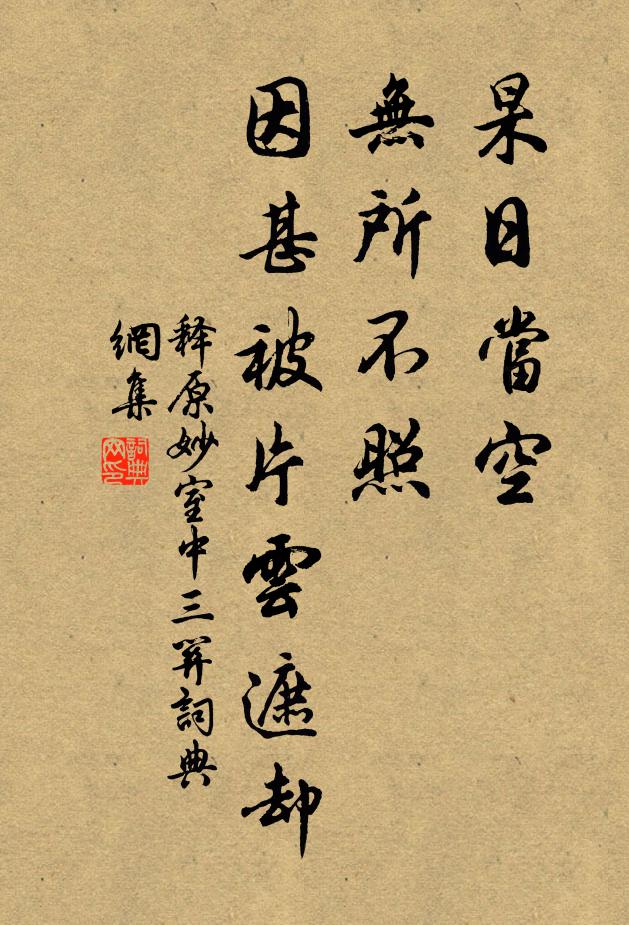 杲日當空
無所不照
因甚被片雲遮却
释原妙室中三關詞典
網集
詞典網印